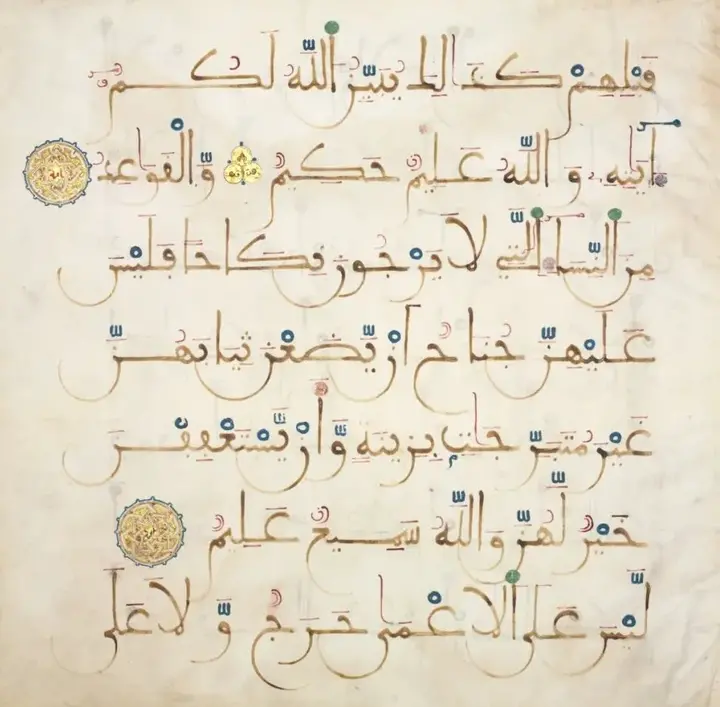 قَبْلِهِمْ كَذَٰلِكَ يُبَيِّنُ اللَّهُ لَكُمُ
ءَايَٰتِهِۦ وَاللَّهُ عَلِيمٌ حَكِيمٌ وَّالْقَوَاعِدُ
مِنَ النِّسَآءِ الَّٰتِي لَا يَرْجُونَ نِكَاحًا فَلَيْسَ
عَلَيْهِنَّ جُنَاحٌ أَنْ يَّضَعْنَ ثِيَابَهُنَّ
غَيْرَ مُتَبَرِّجَٰتٍ بِزِينَةٍ وَّأَنْ يَّسْتَعْفِفْنَ
خَيْرٌ لَّهُنَّ وَاللَّهُ سَمِيعٌ عَلِيمٌ
لَّيْسَ عَلَى الْأَعْمَىٰ حَرَجٌ وَّلَا عَلَى